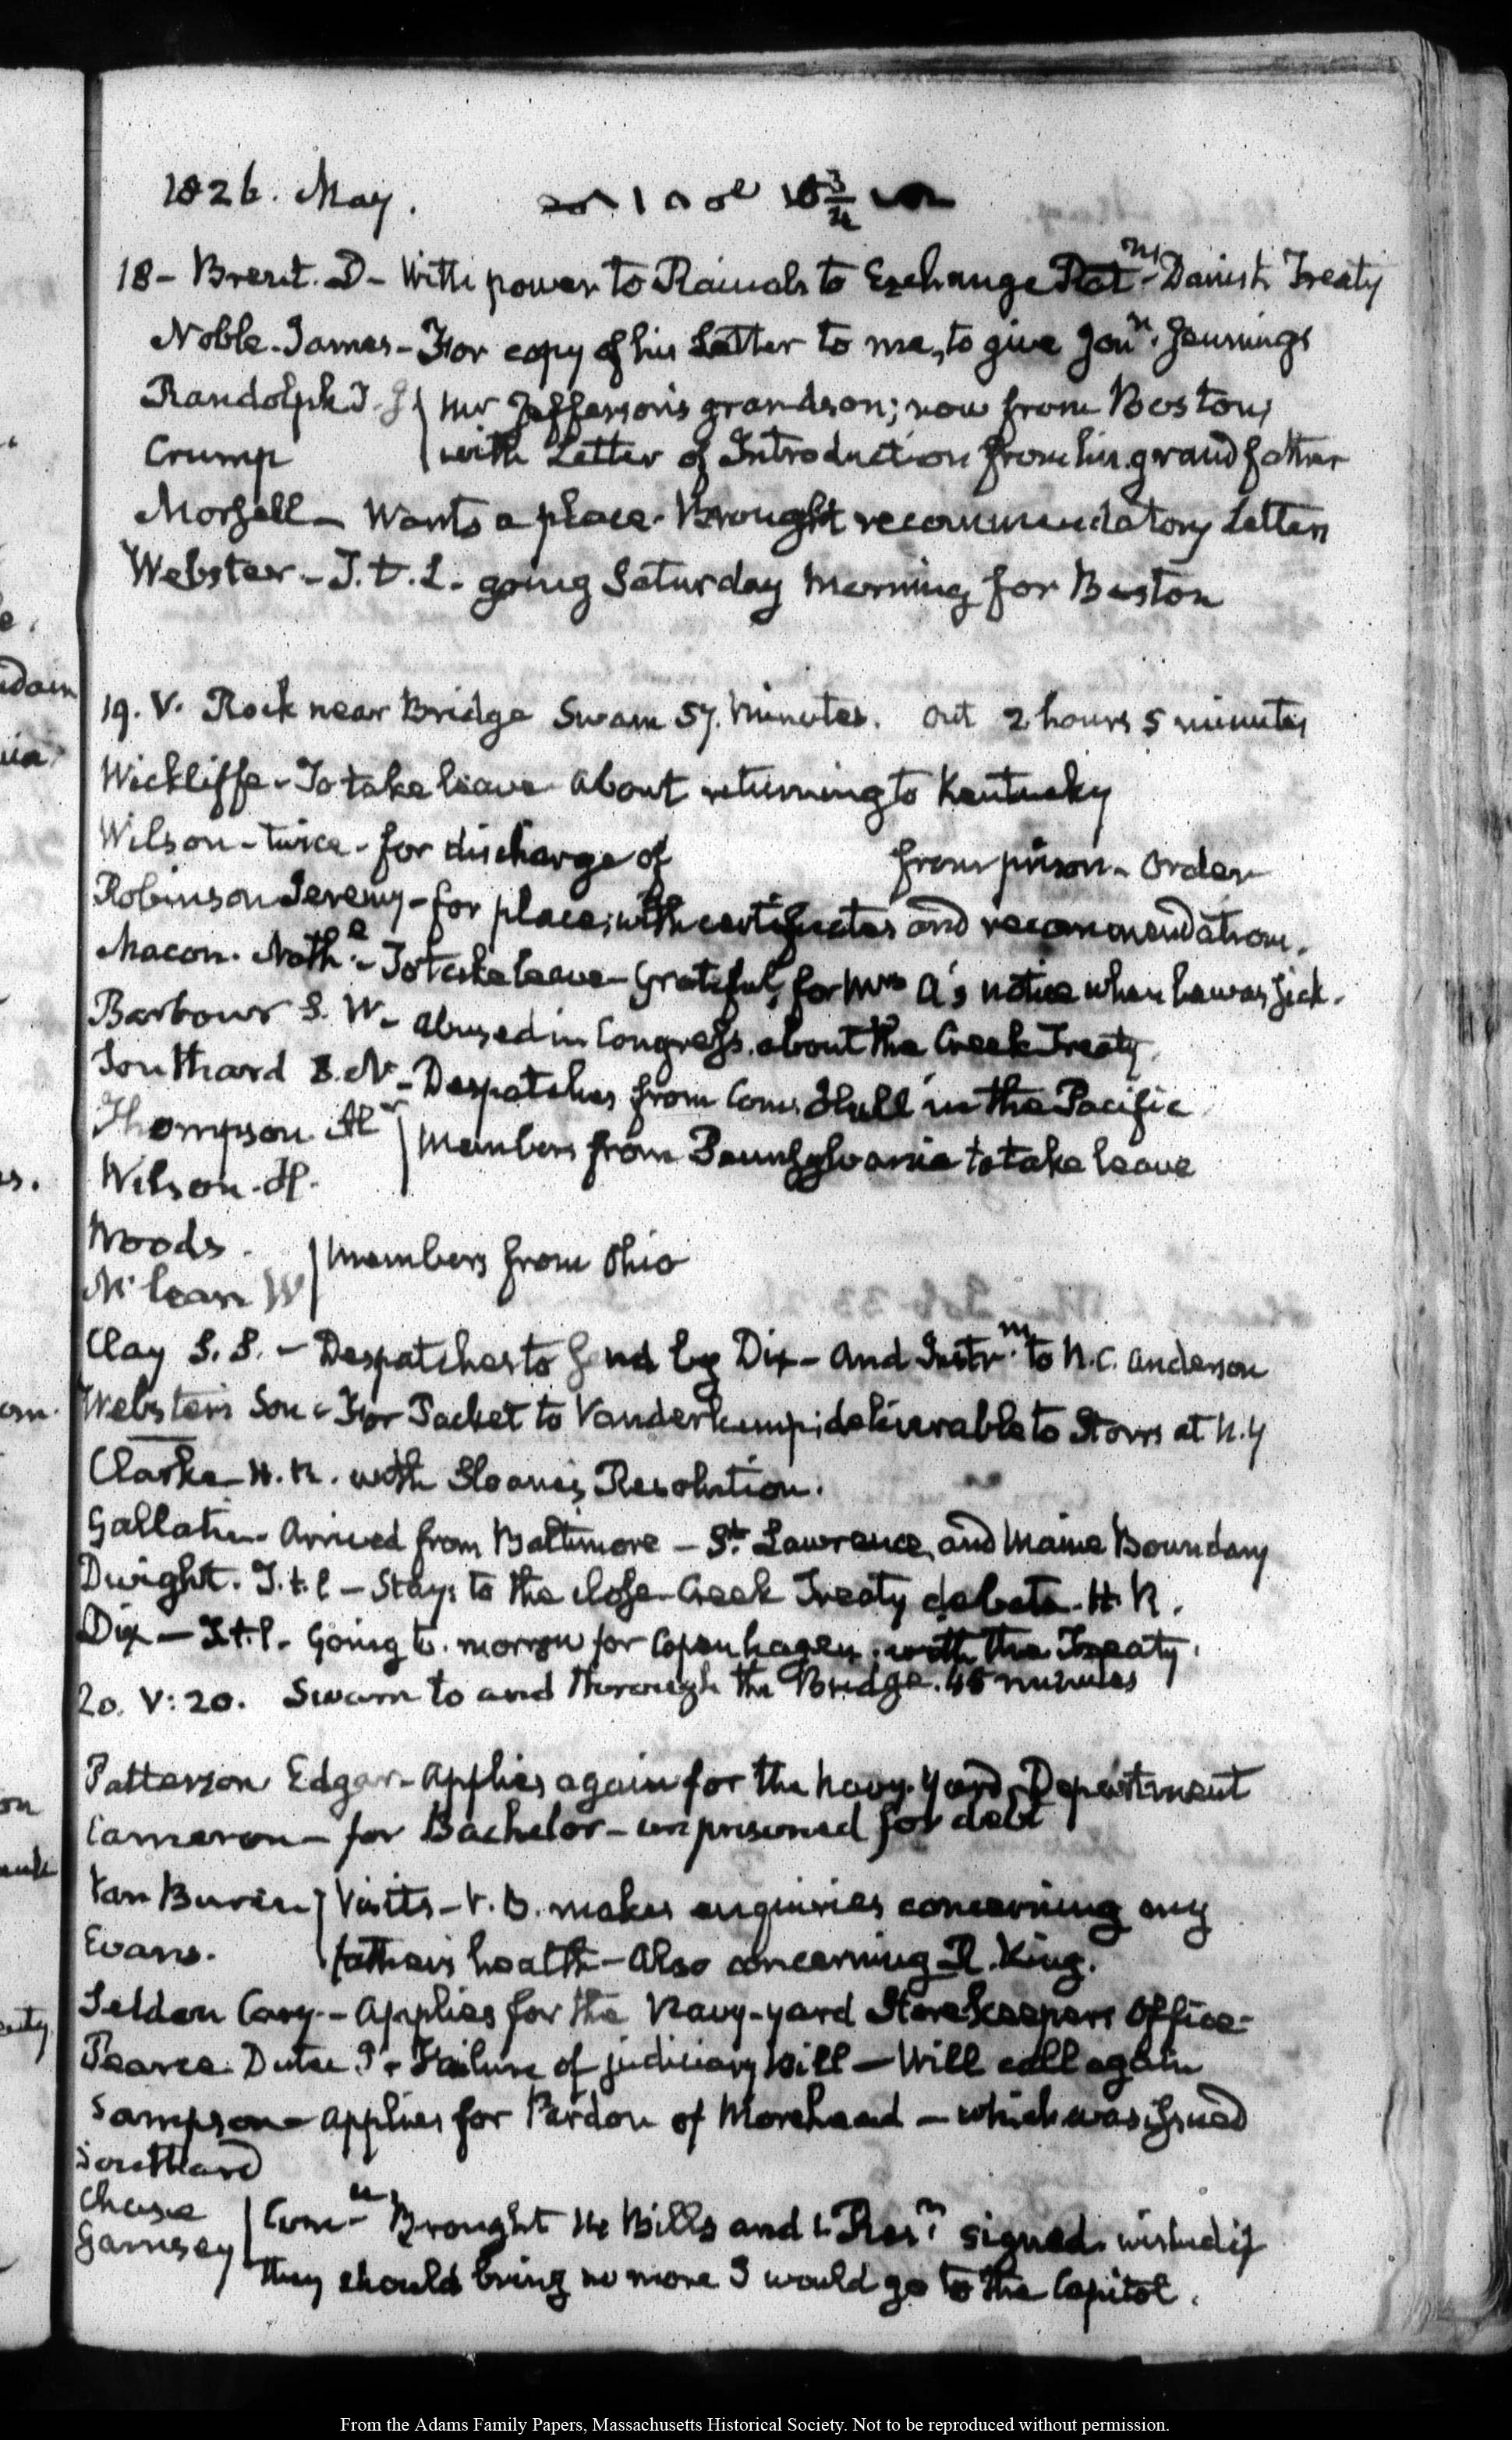 1826. May.
18 - Brent. D - With power to Rainals to Exchange Rat.ns - Danish Treaty
Noble. James - For copy of his Letter to me, to give Jon.n Jennings
Randolph T. J { Mr Jefferson's grandson; now from Boston,
Crump { with Letter of Introduction from his grandfather
Morsell - Wants a place. Brought recommendatory Letters
Webster - T. t. L. going Saturday Morning for Boston
19. V. Rock near Bridge Swam 57. Minutes. Out 2 hours 5 minutes
Wickliffe - To take leave About returning to Kentucky
Wilson - twice - for discharge of from prison - Order
Robinson Jeremy - for place; with certificates and recommendations.
Macon. Nath.l - To take leave - Grateful, for Mrs A's notice when he was sick.
Barbour S. W - abused in Congress about the Creek Treaty.
Southard S. N - Despatches from Com. Hull in the Pacific
Thompson Alr { Members from Pennsylvania to take leave
Wilson. H.
Woods. { Members from Ohio
McLean W
Clay S. S. - Despatches to send by Dix - and Instr.ns to R. C. Anderson
Webster's Son - For Packet to Vanderkemp; deliverable to Storrs at N. Y
Clarke H. R. with Sloane's Resolution.
Gallatin - Arrived from Baltimore - St. Lawrence, and Maine Boundary
Dwight. T. t. l - Stays to the close - Creek Treaty debate. H. R.
Dix - T. t. l. Going to-morrow for Copenhagen; with the Treaty.
20. V: 20. Swam to and through the Bridge. 45 minutes
Patterson Edgar - Applies again for the Navy-Yard Department
Cameron - for Bachelor - imprisoned for debt
Van Buren } Visits - V. B. makes enquiries concerning my
Evans. } father's health - Also concerning R. King.
Selden Cary - Applies for the Navy-yard Storekeeper's Office -
Pearce Dutee J - Failure of judiciary bill - Will call again
Sampson - applies for Pardon of Morehead - which was issued
Southard
Chase { Com.ee Brought 14 Bills and Res.ns signed. wished if
Garnsey { they should bring no more I would go to the Capitol.
From the Adams Family Papers, Massachusetts Historical Society. Not to be reproduced without permission.